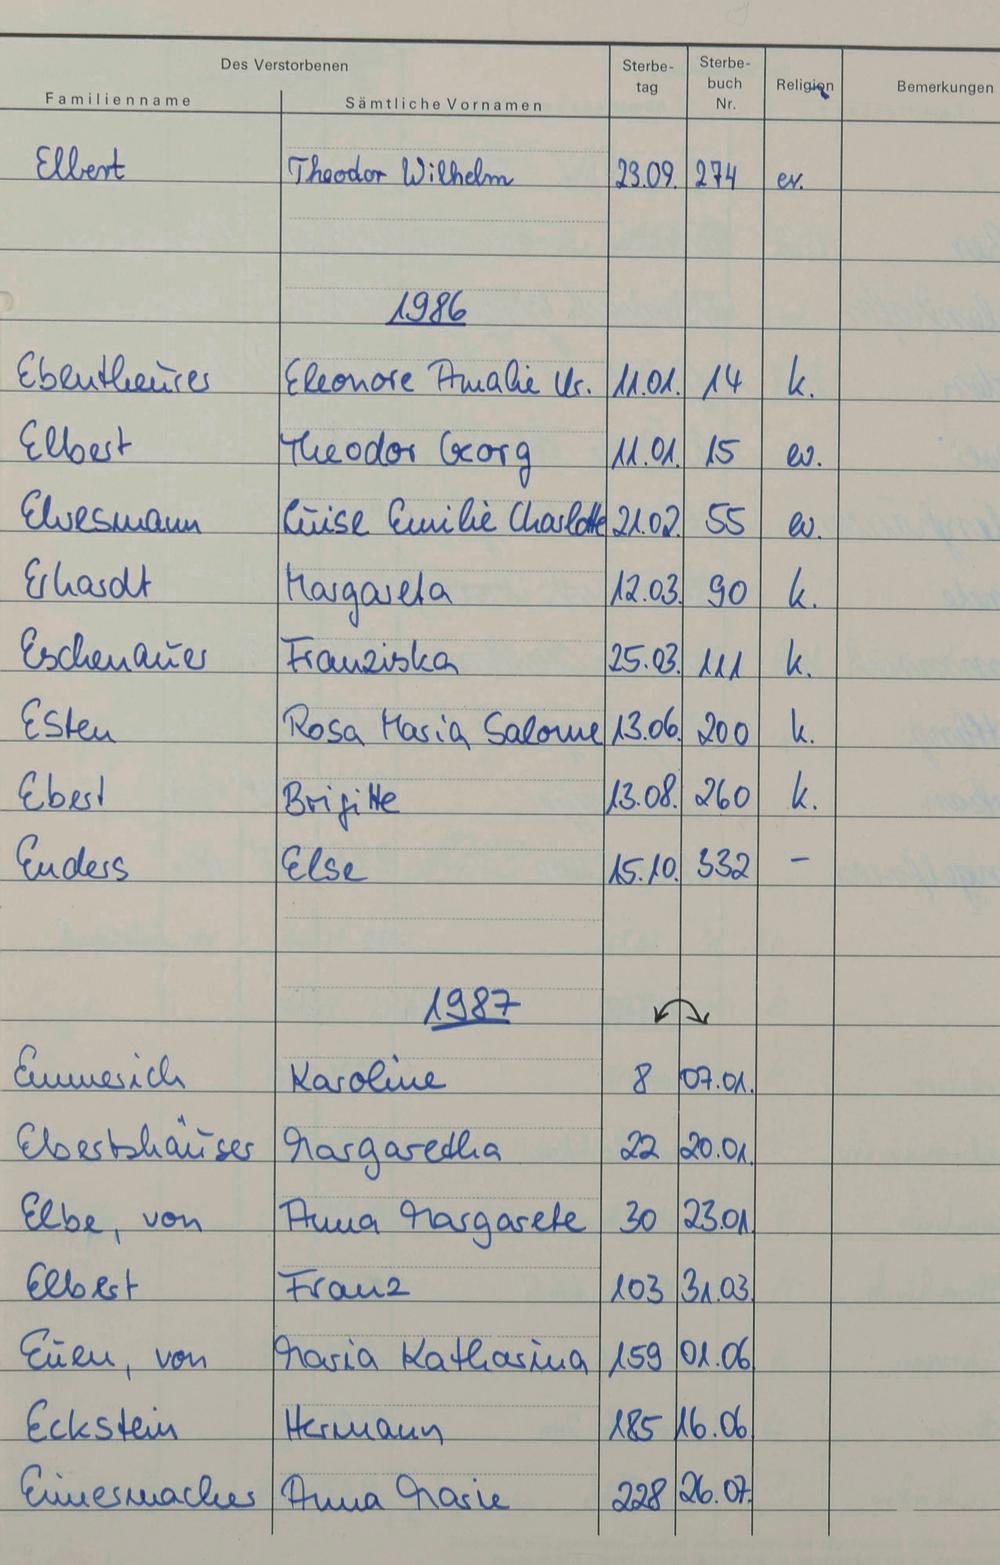 Des Verstorbenen
Familienname Sämtliche Vornamen Sterbe-tag Sterbe-buch Nr. Religion Bemerkungen
Elbert Theodor Wilhelm 23.09. 274 ev.
1986
Ebentheuer Eleonore Amalie Ur. 11.01. 14 k.
Elbert Theodor Georg 11.01. 15 ev.
Elvermann Luise Emilie Charlotte 21.02. 55 ev.
Erhardt Margareta 12.03. 90 k.
Eschenauer Franziska 25.03. 111 k.
Esten Rosa Maria Salome 13.06. 200 k.
Ebert Brigitte 13.08. 260 k.
Enders Else 15.10. 332 –
1987
Emmerich Karoline 8 07.01.
Ebertshäuser Margaretha 22 20.01.
Elbe, von Anna Margarete 30 23.01.
Elbert Franz 103 31.03.
Euen, von Maria Katharina 159 01.06.
Eckstein Hermann 185 16.06.
Anna Marie 228 26.07.